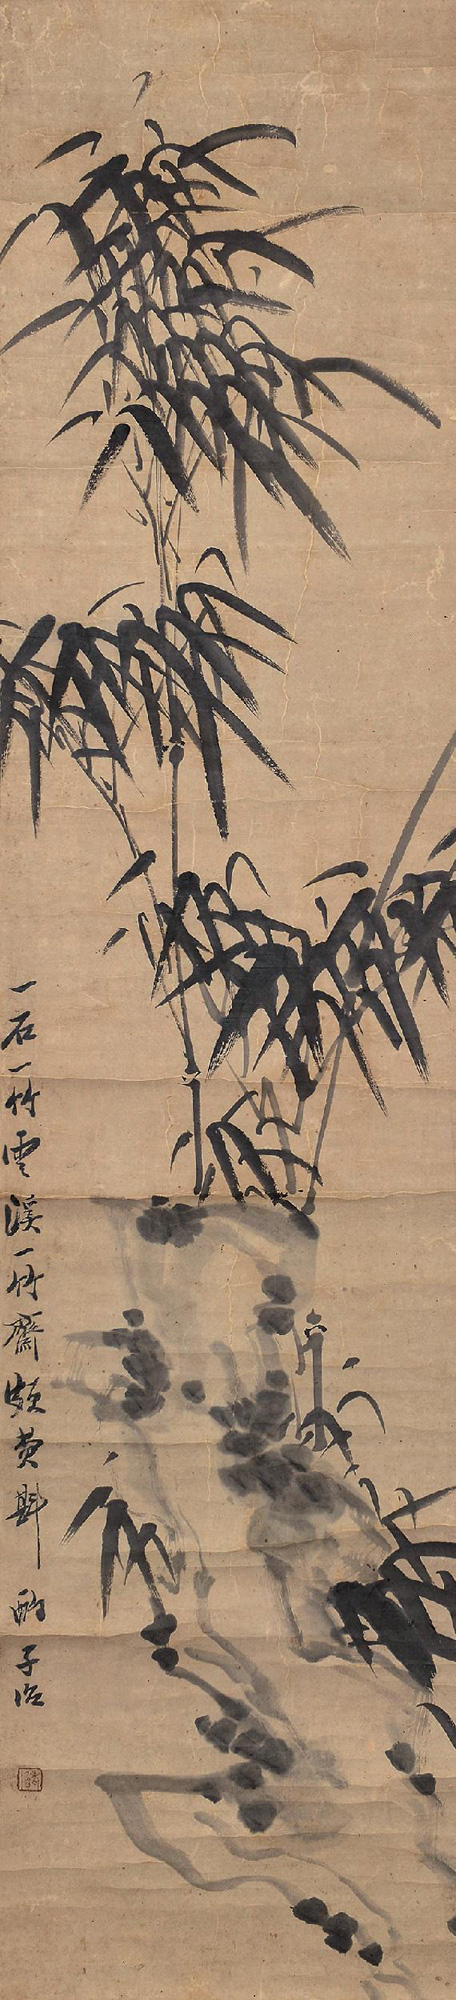 一石一竹雲溪一竹齋頗費斟酌子冶